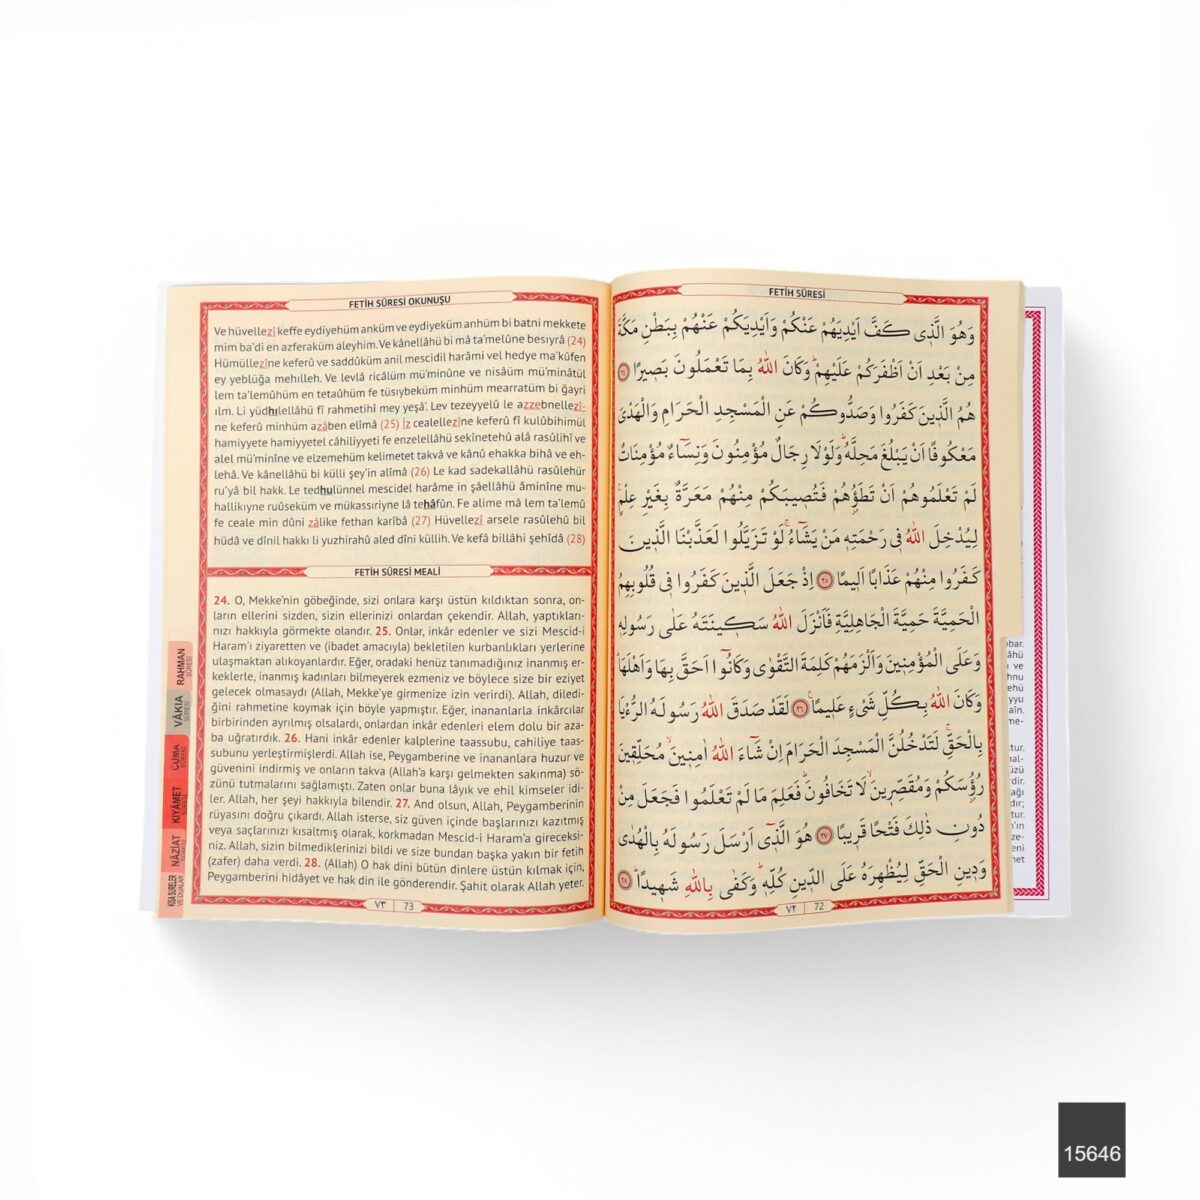 FETİH SÛRESİ OKUNUŞU
Ve hüvellezî keffe eydiyehüm anküm ve eydiyeküm anhüm bi batni mekkete
mim ba'di en azferaküm aleyhim. Ve kânellâhü bi mâ ta'melûne besıyrâ (24)
Hümüllezîne keferû ve saddûküm anil mescidil harâmi vel hedye ma'kûfen
ey yeblüğa mehılleh. Ve levlâ ricâlüm mü'minûne ve nisâüm mü'minâtül
lem ta'lemûhüm en tetaûhüm fe tüsıybeküm minhüm mearratüm bi ğayri
ılm. Li yüdhılellâhü fî rahmetihî mey yeşâ'. Lev tezeyyelû le azzebnellezî-
ne keferû minhüm azâben elîmâ (25) İz cealellezîne keferû fî kulûbihimül
hamiyyete hamiyyetel câhiliyyeti fe enzelellâhü sekînetehû alâ rasûlihî ve
alel mü'minîne ve elzemehüm kelimetet takvâ ve kânû ehakka bihâ ve eh-
lehâ. Ve kânellâhü bi külli şey'in alîmâ (26) Le kad sadekallâhü rasûlehür
ru'yâ bil hakk. Le tedhulünnel mescidel harâme in şâellâhü âminîne mu-
hallikıyne ruûseküm ve mükassıriyne lâ tehâfûn. Fe alime mâ lem ta'lemû
fe ceale min dûni zâlike fethan karîbâ (27) Hüvellezî arsele rasûlehû bil
hüdâ ve dînil hakkı li yuzhirahû aled dîni küllih. Ve kefâ billâhi şehîdâ (28)
FETİH SÛRESİ MEALİ
24. O, Mekke'nin göbeğinde, sizi onlara karşı üstün kıldıktan sonra, on-
ların ellerini sizden, sizin ellerinizi onlardan çekendir. Allah, yaptıkları-
nızı hakkıyla görmekte olandır. 25. Onlar, inkâr edenler ve sizi Mescid-i
Haram'ı ziyaretten ve (ibadet amacıyla) bekletilen kurbanlıkları yerlerine
ulaşmaktan alıkoyanlardır. Eğer, oradaki henüz tanımadığınız inanmış er-
keklerle, inanmış kadınları bilmeyerek ezmeniz ve böylece size bir eziyet
gelecek olmasaydı (Allah, Mekke'ye girmenize izin verirdi). Allah, diledi-
ğini rahmetine koymak için böyle yapmıştır. Eğer, inananlarla inkârcılar
birbirinden ayrılmış olsalardı, onlardan inkâr edenleri elem dolu bir aza-
ba uğratırdık. 26. Hani inkâr edenler kalplerine taassubu, cahiliye taas-
subunu yerleştirmişlerdi. Allah ise, Peygamberine ve inananlara huzur ve
güvenini indirmiş ve onların takva (Allah'a karşı gelmekten sakınma) sö-
zünü tutmalarını sağlamıştı. Zaten onlar buna lâyık ve ehil kimseler idi-
ler. Allah, her şeyi hakkıyla bilendir. 27. And olsun, Allah, Peygamberinin
rüyasını doğru çıkardı. Allah isterse, siz güven içinde başlarınızı kazıtmış
veya saçlarınızı kısaltmış olarak, korkmadan Mescid-i Haram'a gireceksi-
niz. Allah, sizin bilmediklerinizi bildi ve size bundan başka yakın bir fetih
(zafer) daha verdi. 28. (Allah) O hak dini bütün dinlere üstün kılmak için,
Peygamberini hidâyet ve hak din ile gönderendir. Şahit olarak Allah yeter.
٧٣ 73
RAHMAN
SÛRESİ
VÂKIA
SÛRESİ
CUMA
SÛRESİ
KIYÂMET
SÛRESİ
NÂZİAT
SÛRESİ
KISA SURELER
VE DUALAR
FETİH SÛRESİ
وَهُوَ الَّذ۪ي كَفَّ اَيْدِيَهُمْ عَنْكُمْ وَاَيْدِيَكُمْ عَنْهُمْ بِبَطْنِ مَكَّةَ
مِنْ بَعْدِ اَنْ اَظْفَرَكُمْ عَلَيْهِمْۜ وَكَانَ اللّٰهُ بِمَا تَعْمَلُونَ بَص۪يرًا ﴿٢٤﴾
هُمُ الَّذ۪ينَ كَفَرُوا وَصَدُّوكُمْ عَنِ الْمَسْجِدِ الْحَرَامِ وَالْهَدْيَ
مَعْكُوفًا اَنْ يَبْلُغَ مَحِلَّهُۜ وَلَوْلَا رِجَالٌ مُؤْمِنُونَ وَنِسَٓاءٌ مُؤْمِنَاتٌ
لَمْ تَعْلَمُوهُمْ اَنْ تَطَؤُ۫هُمْ فَتُص۪يبَكُمْ مِنْهُمْ مَعَرَّةٌ بِغَيْرِ عِلْمٍۚ
لِيُدْخِلَ اللّٰهُ ف۪ي رَحْمَتِه۪ مَنْ يَشَٓاءُۚ لَوْ تَزَيَّلُوا لَعَذَّبْنَا الَّذ۪ينَ
كَفَرُوا مِنْهُمْ عَذَابًا اَل۪يمًا ﴿٢٥﴾ اِذْ جَعَلَ الَّذ۪ينَ كَفَرُوا ف۪ي قُلُوبِهِمُ
الْحَمِيَّةَ حَمِيَّةَ الْجَاهِلِيَّةِ فَاَنْزَلَ اللّٰهُ سَك۪ينَتَهُ عَلٰى رَسُولِه۪
وَعَلَى الْمُؤْمِن۪ينَ وَاَلْزَمَهُمْ كَلِمَةَ التَّقْوٰى وَكَانُٓوا اَحَقَّ بِهَا وَاَهْلَهَاۜ
وَكَانَ اللّٰهُ بِكُلِّ شَيْءٍ عَل۪يمًا۟ ﴿٢٦﴾ لَقَدْ صَدَقَ اللّٰهُ رَسُولَهُ الرُّءْيَا
بِالْحَقِّۚ لَتَدْخُلُنَّ الْمَسْجِدَ الْحَرَامَ اِنْ شَٓاءَ اللّٰهُ اٰمِن۪ينَۙ مُحَلِّق۪ينَ
رُؤُ۫سَكُمْ وَمُقَصِّر۪ينَۙ لَا تَخَافُونَۜ فَعَلِمَ مَا لَمْ تَعْلَمُوا فَجَعَلَ مِنْ
دُونِ ذٰلِكَ فَتْحًا قَر۪يبًا ﴿٢٧﴾ هُوَ الَّذ۪ٓي اَرْسَلَ رَسُولَهُ بِالْهُدٰى
وَد۪ينِ الْحَقِّ لِيُظْهِرَهُ عَلَى الدّ۪ينِ كُلِّه۪ۜ وَكَفٰى بِاللّٰهِ شَه۪يدًاۜ ﴿٢٨﴾
٧٢ 72
15646